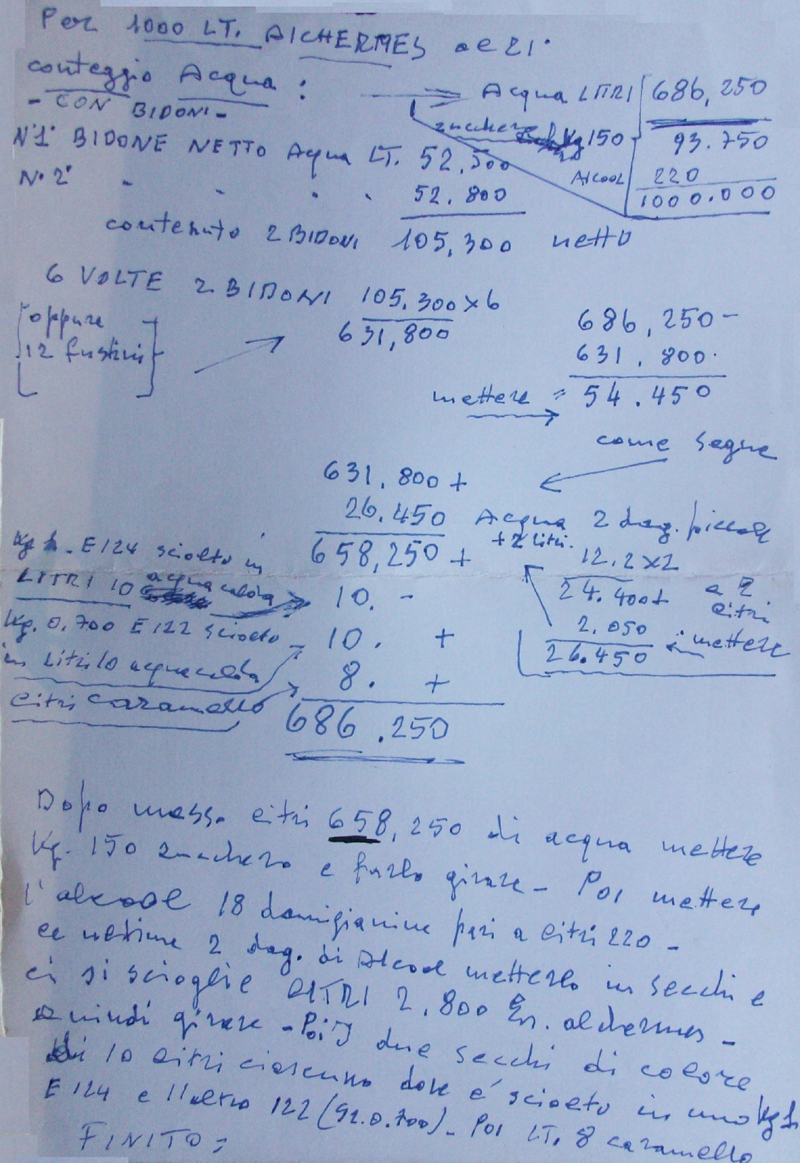 Per 1000 LT. AlCHERMES al 21°
conteggio Acqua :
Acqua LITRI 686,250
- CON BIDONI -
zucchero Kg 150 - 93.750
Alcool 220
1000.000
N°1° BIDONE NETTO Acqua LT. 52,500
N° 2° " " " " 52.800
contenuto 2 BIDONI 105,300 netto
6 VOLTE 2 BIDONI 105.300x6
631,800
[oppure
12 fustini]
686,250 -
631.800.
mettere = 54.450
come segue
631,800 +
26.450 Acqua 2 dag. piccole
+ 2 litri.
658,250 +
12.2x2
24.400+ e 2
litri
2.050
26.450 mettere
Kg 1. E124 sciolto in
LITRI 10 acqua calda
10. -
Kg. 0.700 E122 sciolto
in Litri 10 acqua calda
10. +
litri caramello
8. +
686.250
Dopo messo litri 658,250 di acqua mettere
Kg. 150 zucchero e farlo girare - Poi mettere
l'alcool 18 damigianine pari a litri 220 -
le ultime 2 dag. di Alcool metterlo in secchi e
ci si scioglie LITRI 2,800 Es. alchermes -
quindi girare - Poi due secchi di colore
di 10 litri ciascuno dove e' sciolto in uno Kg 1
E124 e l'altro 122 (92.0.700) - Poi LT. 8 caramello
FINITO =